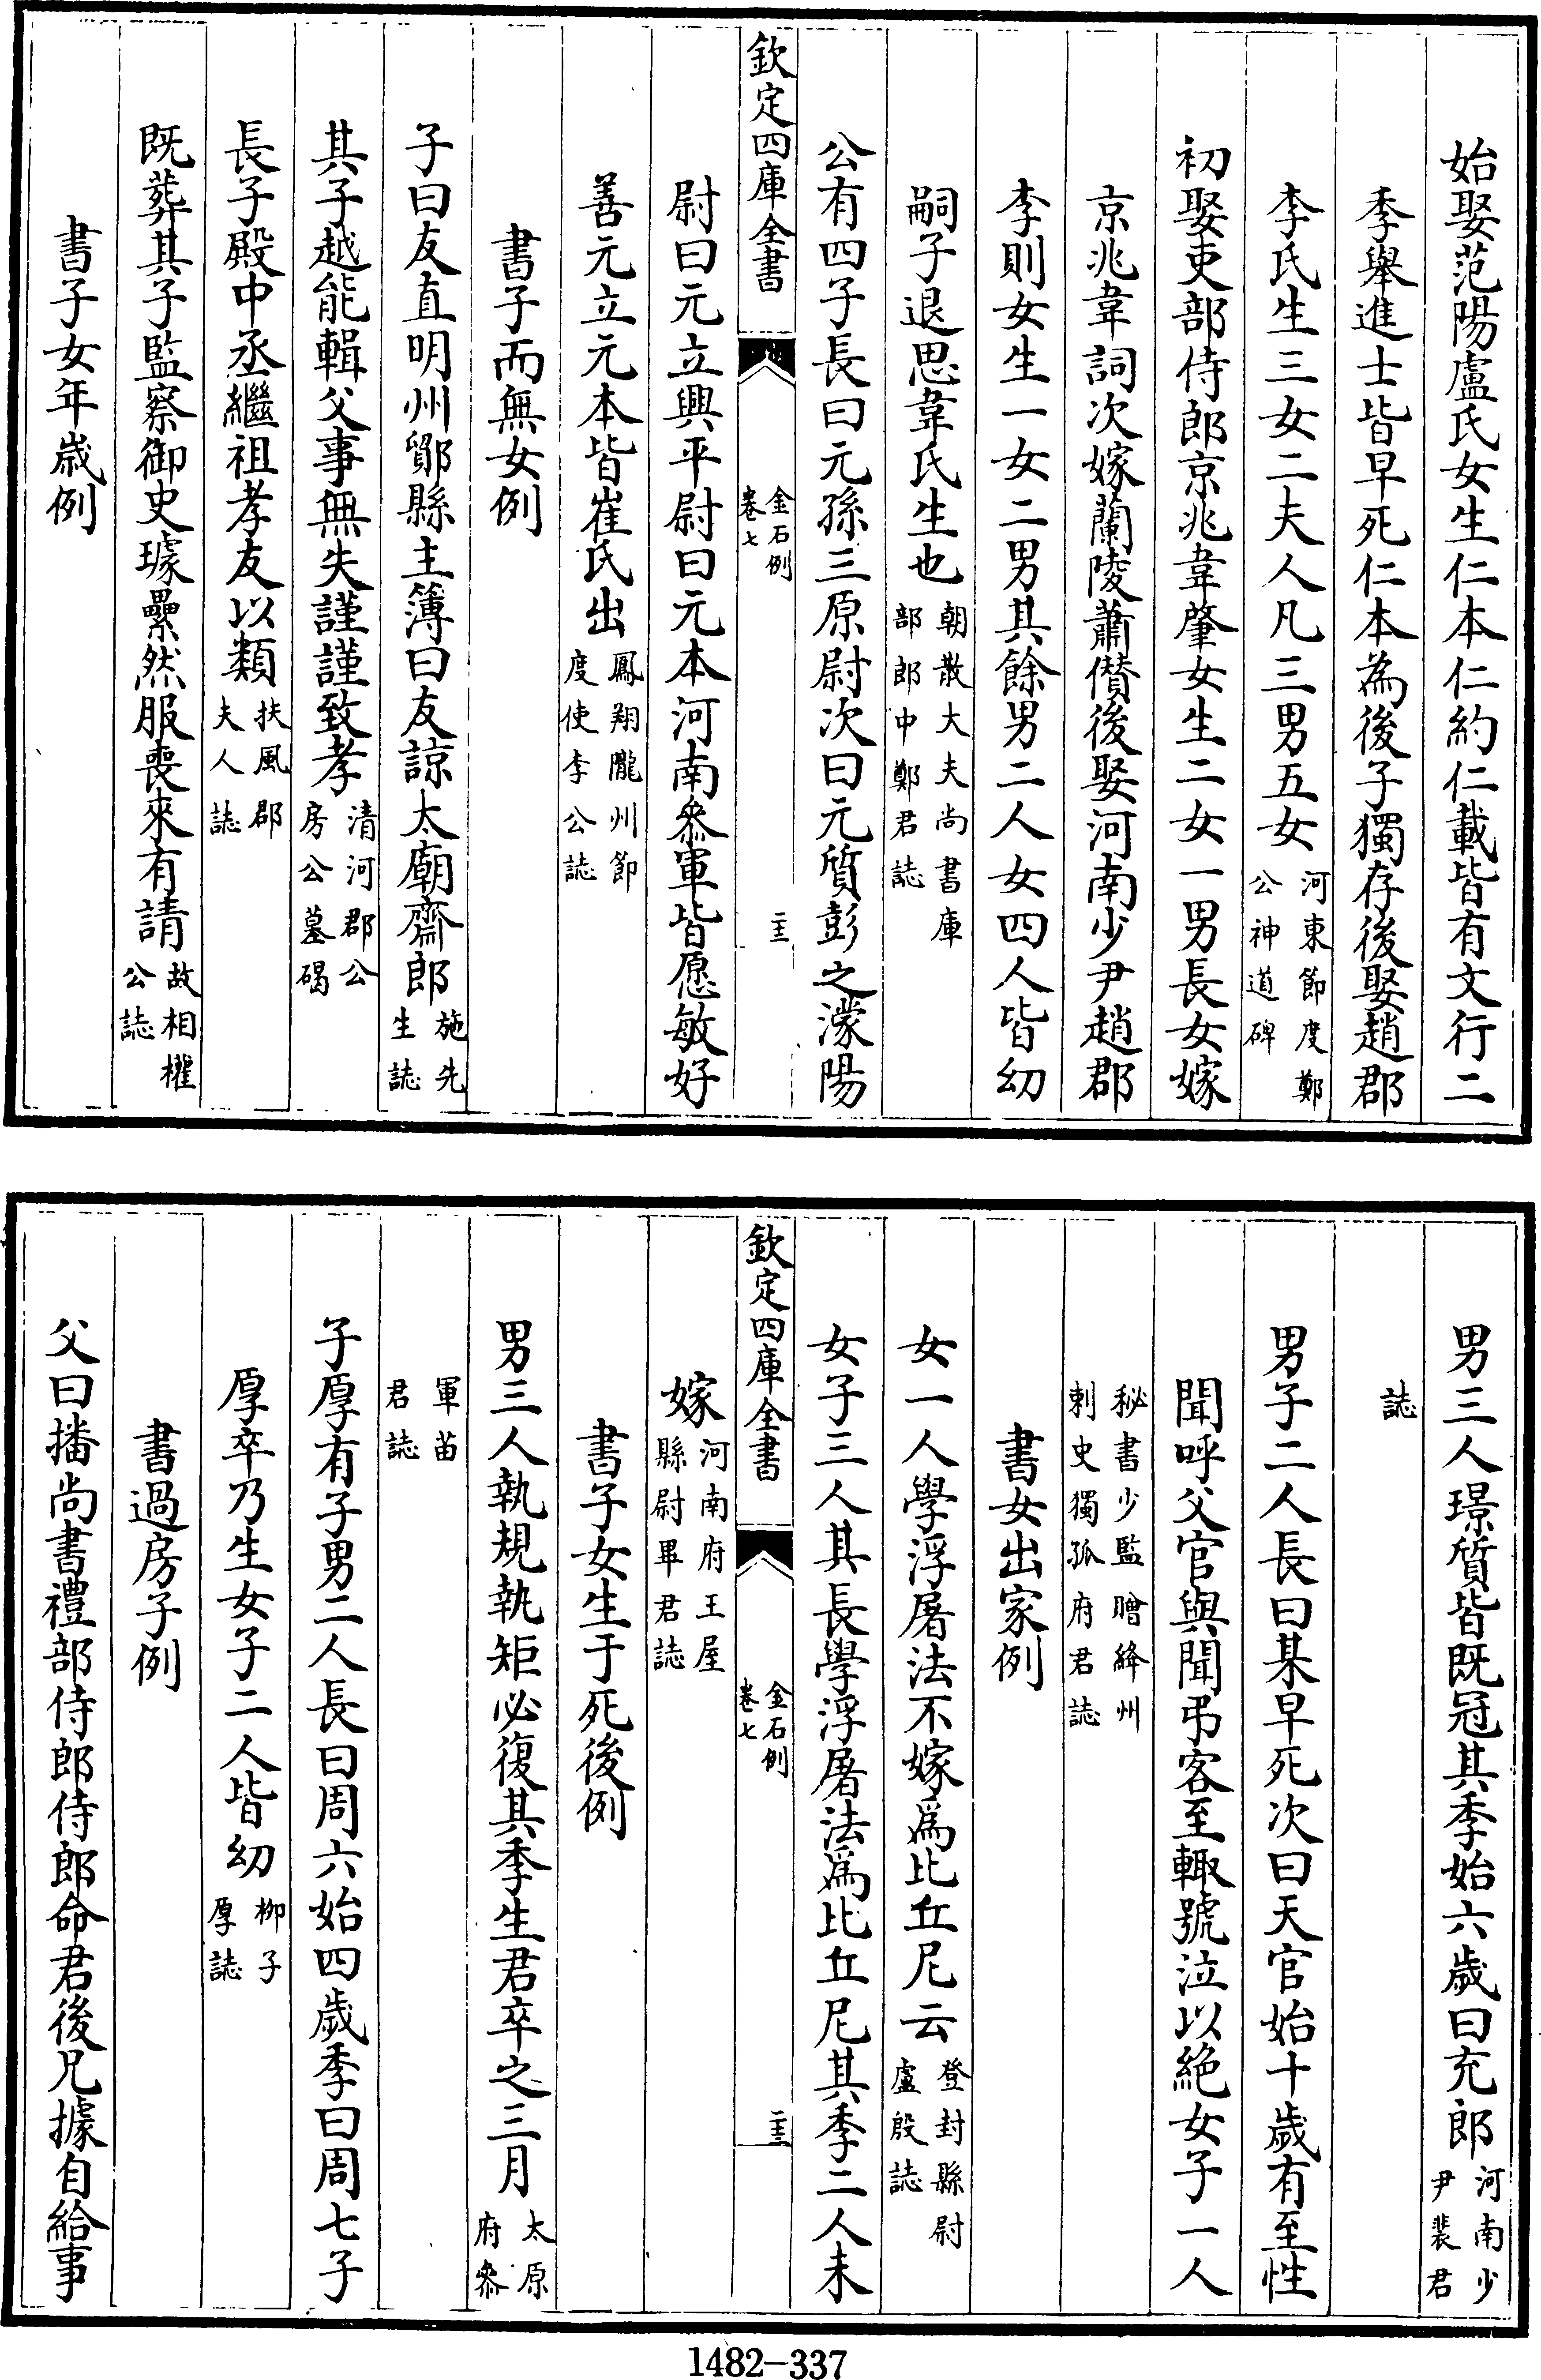 始娶范陽盧氏女生仁本仁約仁載皆有文行二
季舉進士皆早死仁本為後子獨存後娶趙郡
李氏生三女二夫人凡三男五女河東節度鄭公神道碑
初娶吏部侍郎京兆韋肇女生二女一男長女嫁
京兆韋詞次嫁蘭陵蕭儧後娶河南少尹趙郡
李則女生一女二男其餘男二人女四人皆幼
嗣子退思韋氏生也朝散大夫尚書庫部郎中鄭君誌
公有四子長曰元孫三原尉次曰元質彭之濛陽
欽定四庫全書 金石例卷七 二十三
尉曰元立興平尉曰元本河南參軍皆愿敏好
善元立元本皆崔氏出鳳翔隴州節度使李公誌
書子而無女例
子曰友直明州鄮縣主簿曰友諒太廟齋郎施先生誌
其子越能輯父事無失謹謹致孝清河郡公房公墓碣
長子殿中丞繼祖孝友以類扶風郡夫人誌
既葬其子監察御史璩纍然服喪來有請故相權公誌
書子女年歲例
男三人璟質皆既冠其季始六歲曰充郎河南少尹裴君
誌
男子二人長曰某早死次曰天官始十歲有至性
聞呼父官與聞弔客至輙號泣以絶女子一人
秘書少監贈絳州刺史獨孤府君誌
書女出家例
女一人學浮屠法不嫁爲比丘尼云登封縣尉盧殷誌
女子三人其長學浮屠法爲比丘尼其季二人未
欽定四庫全書 金石例卷七 二十三
嫁河南府王屋縣尉畢君誌
書子女生于死後例
男三人執規執矩必復其季生君卒之三月太原府參
軍苗君誌
子厚有子男二人長曰周六始四歲季曰周七子
厚卒乃生女子二人皆幼柳子厚誌
書過房子例
父曰播尚書禮部侍郎侍郎命君後兄據自給事
1482-337